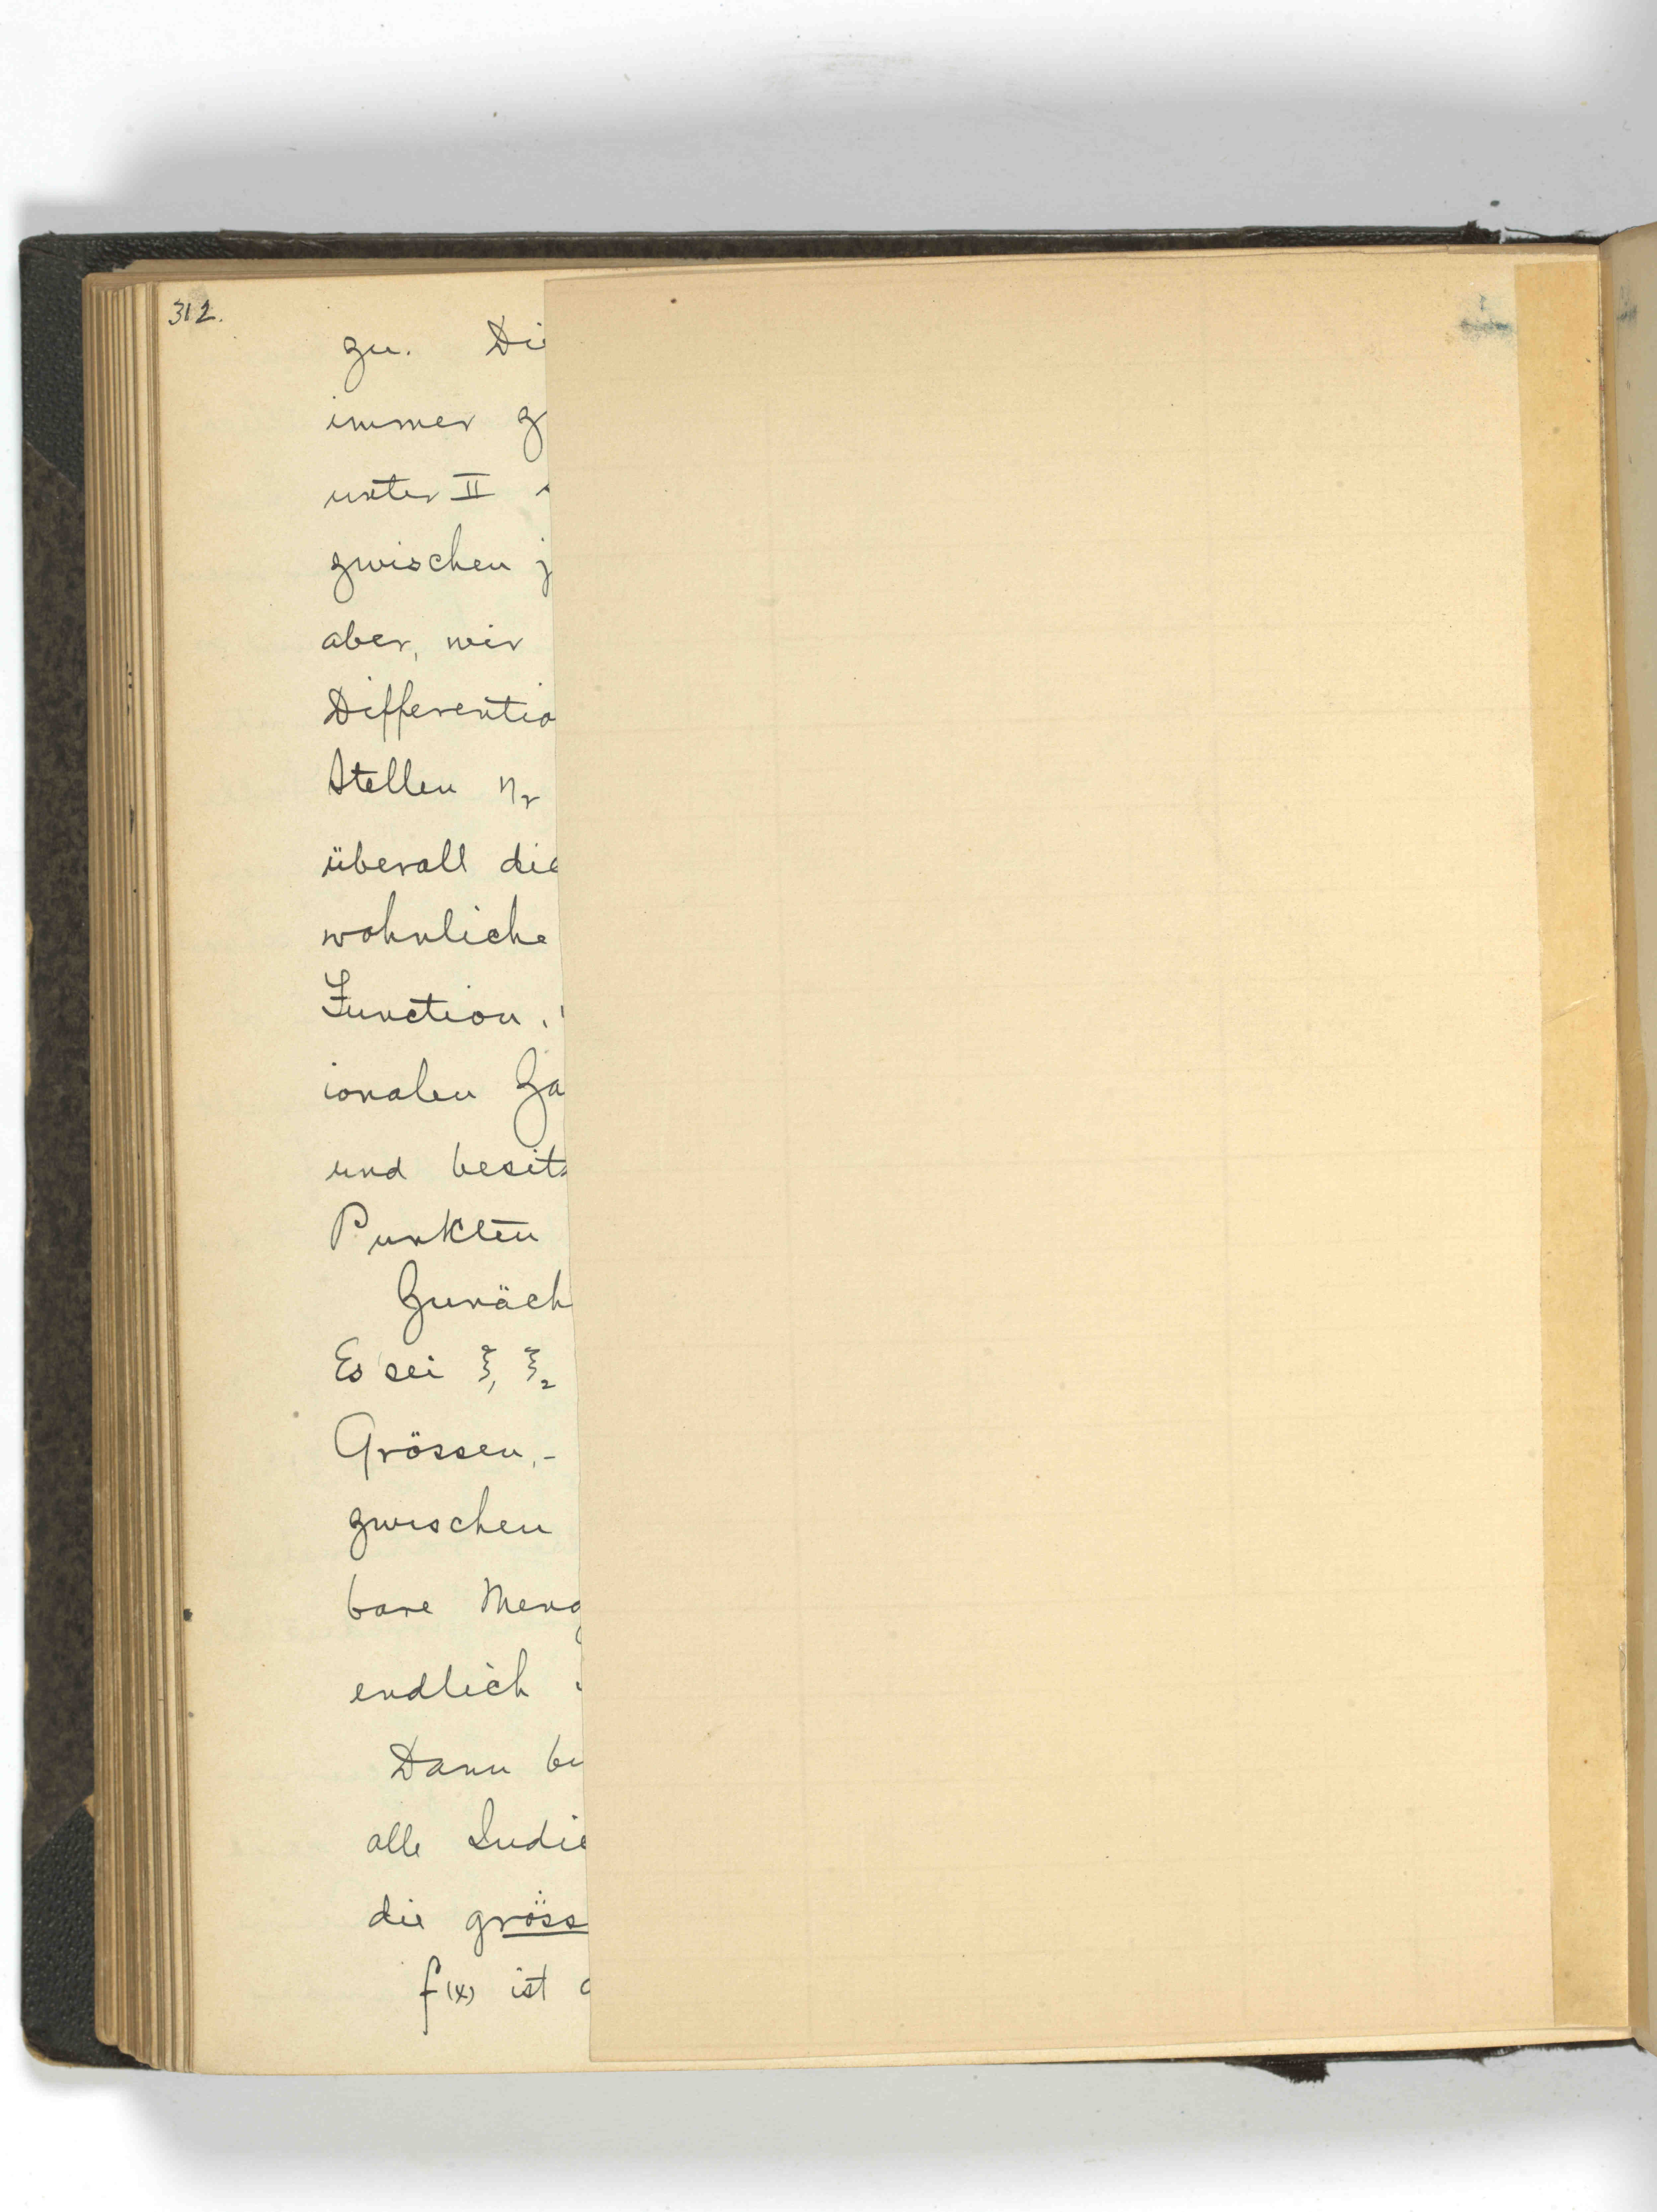 312.
zu. Di
immer g
unter II
zwischen j
aber, wir
Differentia
Stellen η_r
überall die
wohnliche
Function.
ionalen Za
und besitz
Punkten
Zunäch
Es sei ξ₁ ξ₂
Grössen,-
zwischen
bare Meng
endlich
Dann be
alle Indic
die gröss
f(x) ist